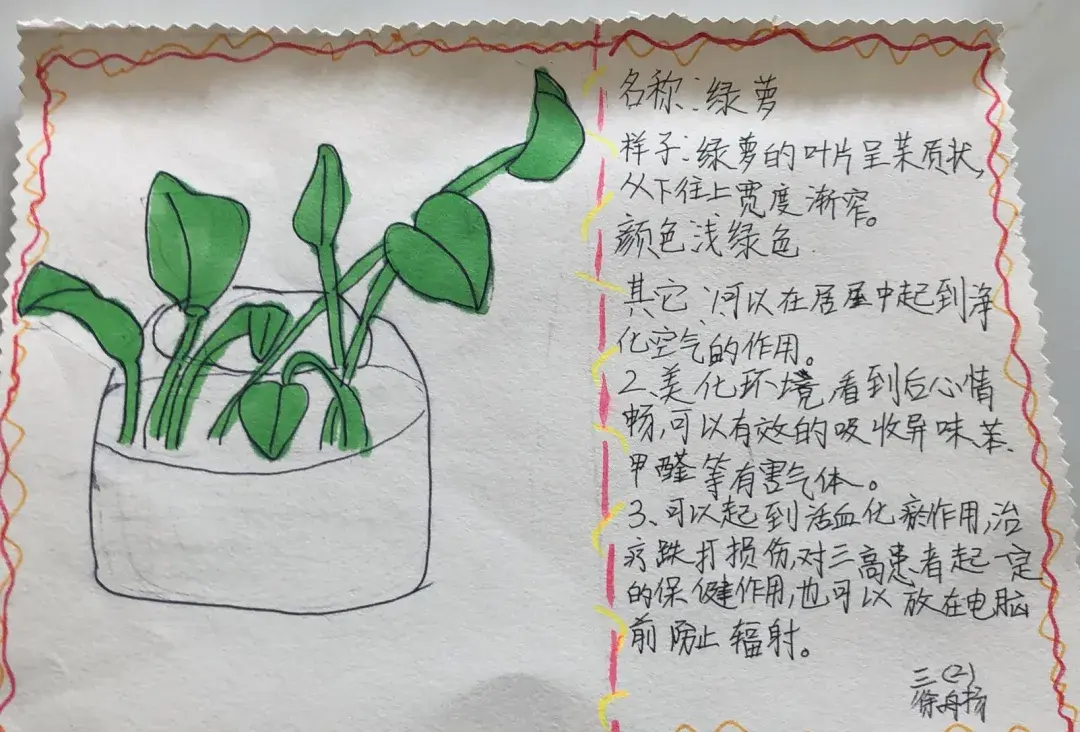 名称:绿萝
样子:绿萝的叶片呈茉质状,
从下往上宽度渐窄。
颜色浅绿色.
其它:1、可以在居屋中起到净
化空气的作用。
2、美化环境,看到后心情
畅,可以有效的吸收异味苯、
甲醛等有害气体。
3、可以起到活血化瘀作用,治
疗跌打损伤,对三高患者起一定
的保健作用,也可以放在电脑
前防止辐射。
三(2)
徐舟扬